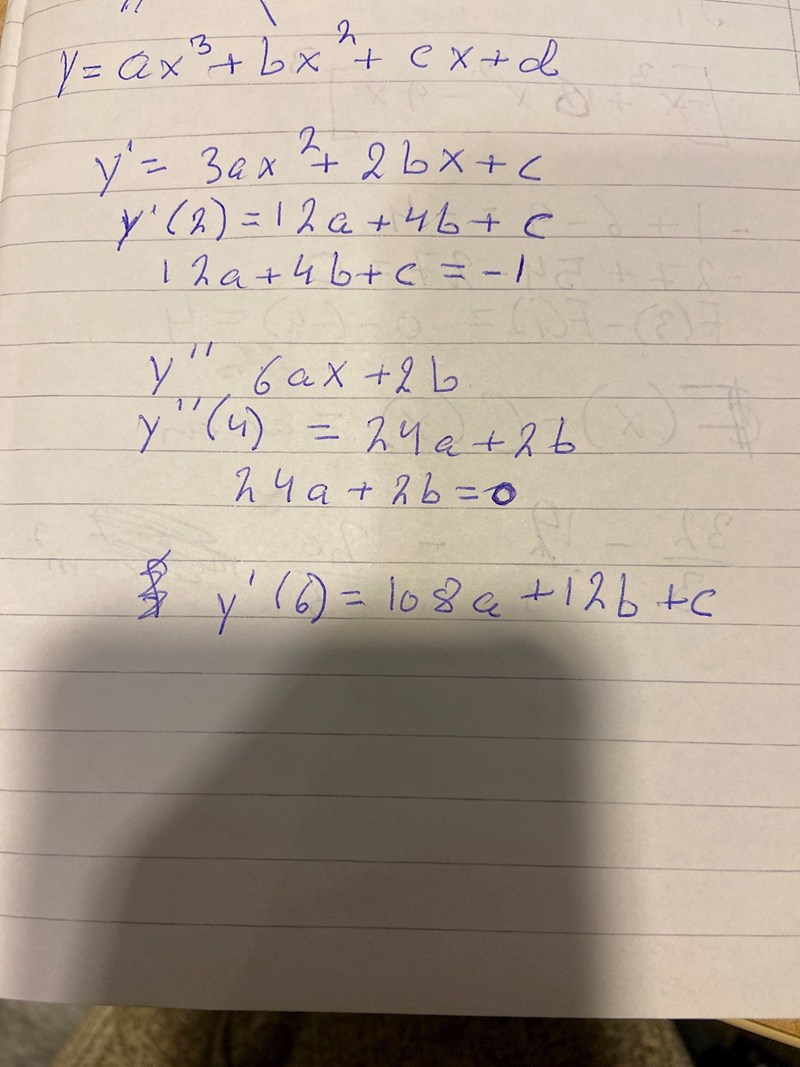 y = ax³ + bx² + cx + d
y' = 3ax² + 2bx + c
y'(2) = 12a + 4b + c
12a + 4b + c = -1
y'' 6ax + 2b
y''(4) = 24a + 2b
24a + 2b = 0
y'(6) = 108a + 12b + c